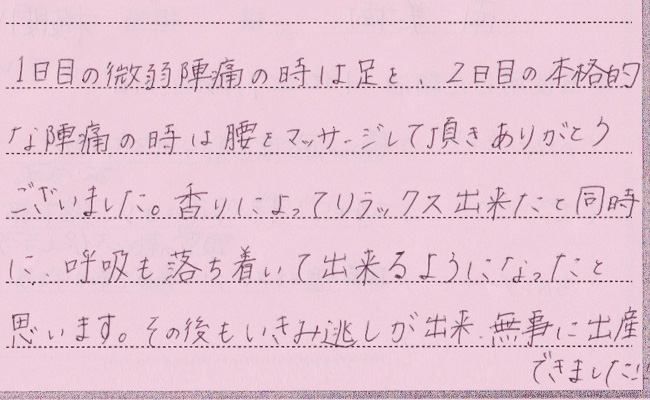 1日目の微弱陣痛の時は足を、2日目の本格的
な陣痛の時は腰をマッサージして頂きありがとう
ございました。香りによってリラックス出来たと同時
に、呼吸も落ち着いて出来るようになったと
思います。その後もいきみ逃しが出来、無事に出産
できました!